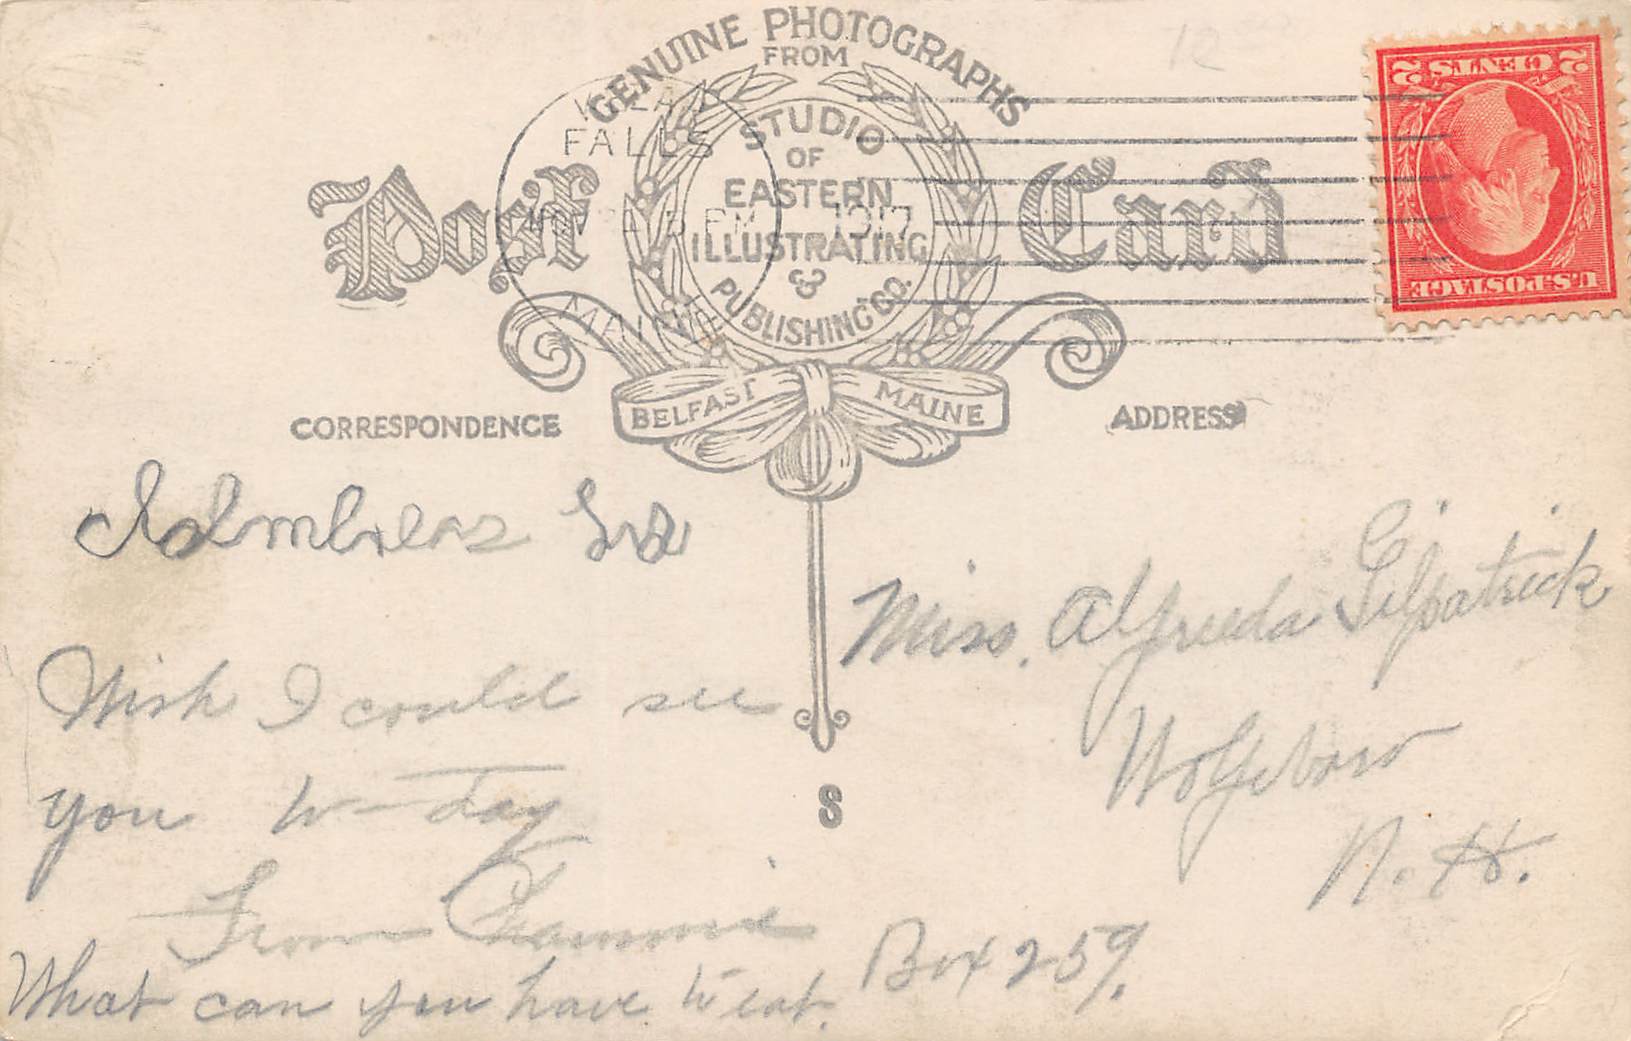 GENUINE PHOTOGRAPHS
FROM
STUDIO
OF
EASTERN
ILLUSTRATING
&
PUBLISHING CO.
BELFAST MAINE
Post Card
FALLS
5 PM 1917
MAINE
2 CENTS 2
U.S. POSTAGE
12
CORRESPONDENCE
ADDRESS
Wish I could see
you to-day
From
What can you have to eat.
S
Miss. Alfreeda Gilpatrick
Wolfeboro
N.H.
Box 259.